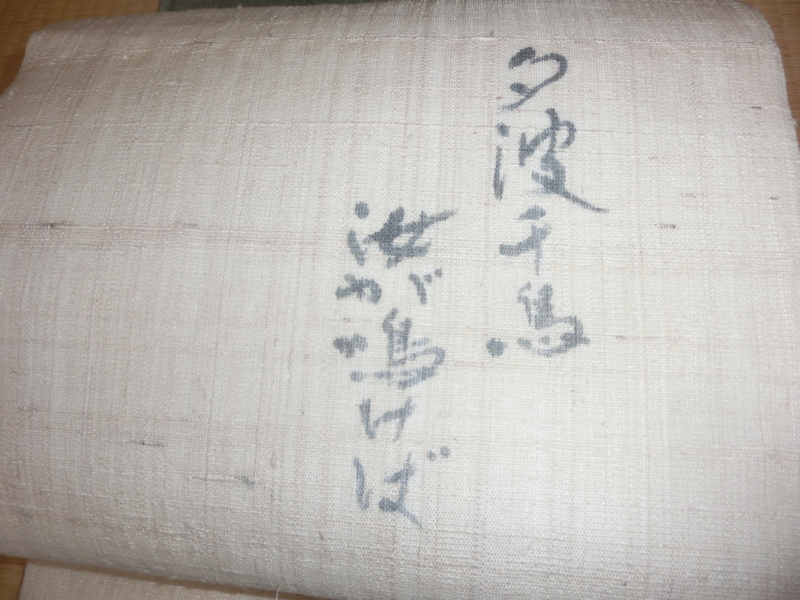 夕波千鳥
汝が鳴けば